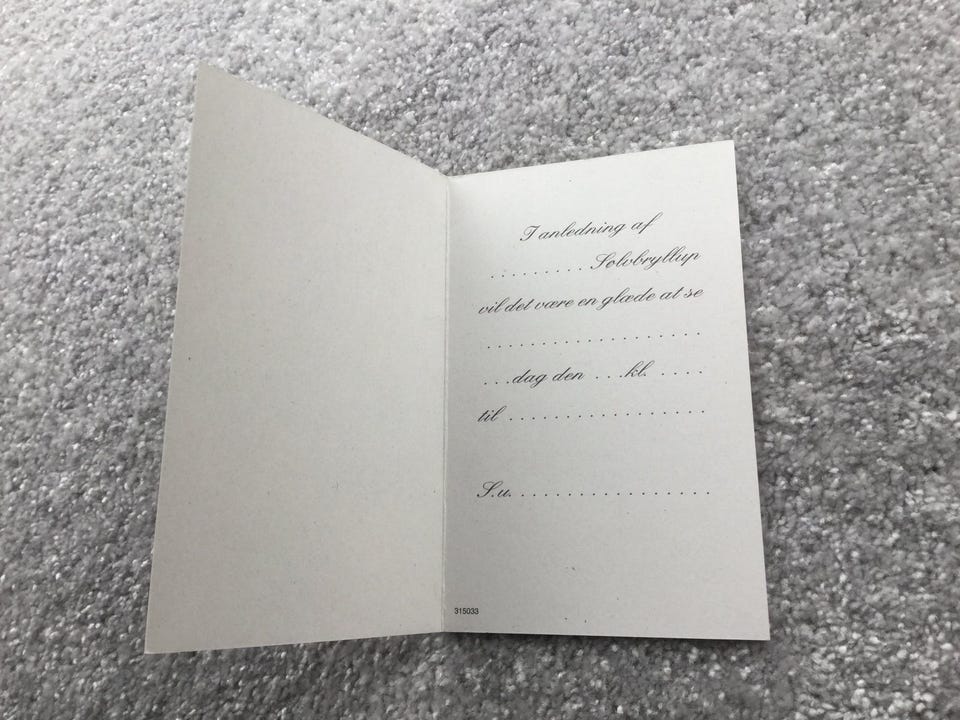 I anledning af
. . . . . . . . . Sølvbryllup
vil det være en glæde at se
. . . . . . . . . . . . . . . . . . .
. . . dag den . . . kl. . . . .
til . . . . . . . . . . . . . . . . .
S.u. . . . . . . . . . . . . . . . . .
315033